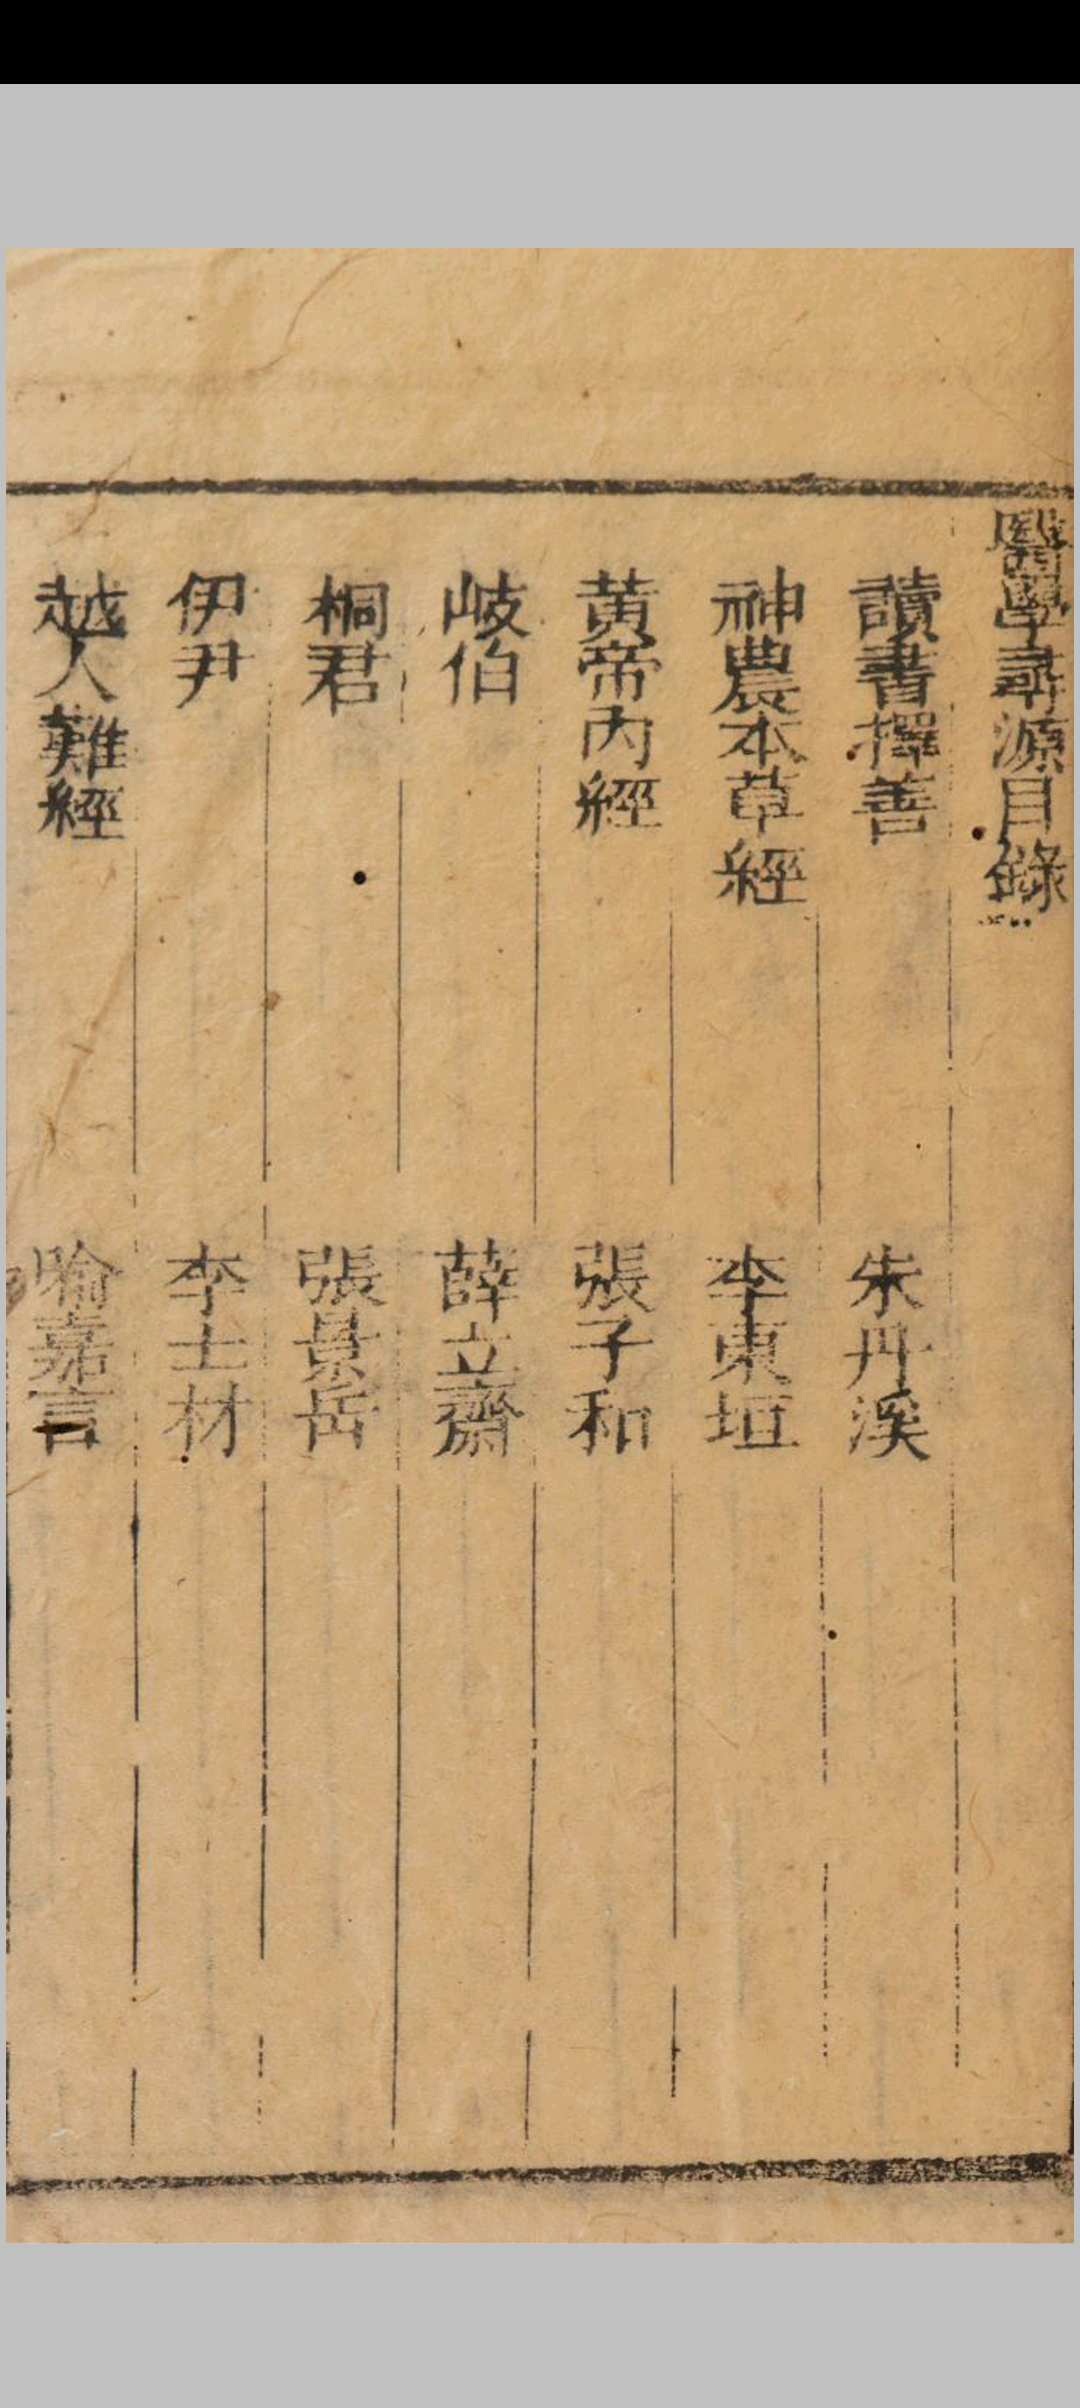 醫學尋源目錄
讀書擇善
朱丹溪
神農本草經
李東垣
黃帝內經
張子和
岐伯
薛立齋
桐君
張景岳
伊尹
李士材
越人難經
喻嘉言